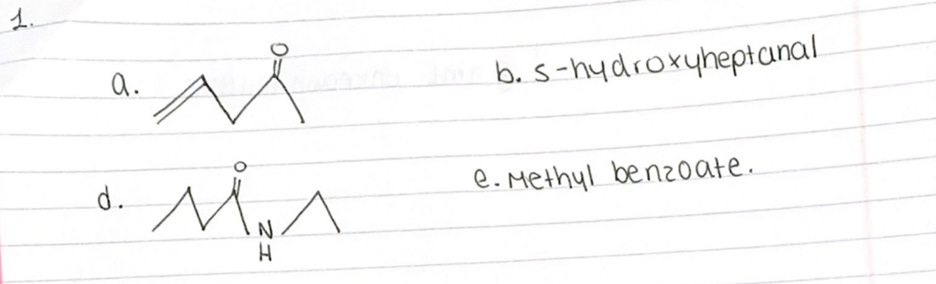 1.
a. O
b. 5-hydroxyheptanal
d. O
N
H
e. Methyl benzoate.